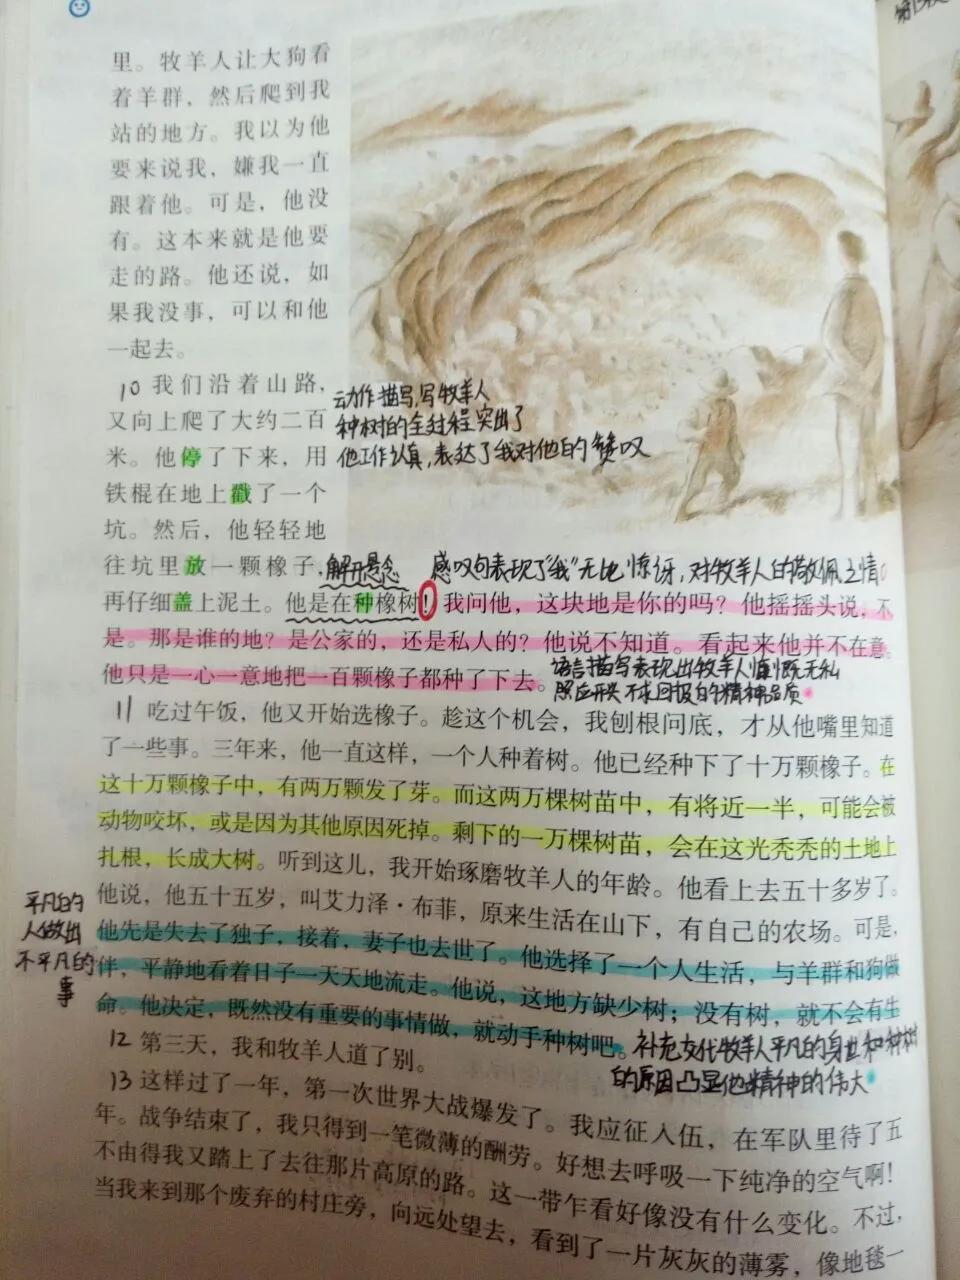 里。牧羊人让大狗看
着羊群，然后爬到我
站的地方。我以为他
要来说我，嫌我一直
跟着他。可是，他没
有。这本来就是他要
走的路。他还说，如
果我没事，可以和他
一起去。
10 我们沿着山路，
又向上爬了大约二百
米。他停了下来，用
铁棍在地上戳了一个
坑。然后，他轻轻地
往坑里放一颗橡子，
再仔细盖上泥土。他是在种橡树！我问他，这块地是你的吗？他摇摇头说，不
是。那是谁的地？是公家的，还是私人的？他说不知道。看起来他并不在意。
他只是一心一意地把一百颗橡子都种了下去。
动作描写,写牧羊人
种树的全过程突出了
他工作认真,表达了我对他的赞叹
解开悬念
感叹句表现了“我”无比惊讶,对牧羊人的敬佩之情
语言描写表现出牧羊人慷慨无私
照应开头不求回报的精神品质
11 吃过午饭，他又开始选橡子。趁这个机会，我刨根问底，才从他嘴里知道
了一些事。三年来，他一直这样，一个人种着树。他已经种下了十万颗橡子。在
这十万颗橡子中，有两万颗发了芽。而这两万棵树苗中，有将近一半，可能会被
动物咬坏，或是因为其他原因死掉。剩下的一万棵树苗，会在这光秃秃的土地上
扎根，长成大树。听到这儿，我开始琢磨牧羊人的年龄。他看上去五十多岁了。
他说，他五十五岁，叫艾力泽·布菲，原来生活在山下，有自己的农场。可是，
他先是失去了独子，接着，妻子也去世了。他选择了一个人生活，与羊群和狗做
伴，平静地看着日子一天天地流走。他说，这地方缺少树；没有树，就不会有生
命。他决定，既然没有重要的事情做，就动手种树吧。
平凡的
人做出
不平凡的
事
补充交代牧羊人平凡的身世和种树
的原因凸显他精神的伟大
12 第三天，我和牧羊人道了别。
13 这样过了一年，第一次世界大战爆发了。我应征入伍，在军队里待了五
年。战争结束了，我只得到一笔微薄的酬劳。好想去呼吸一下纯净的空气啊！
不由得我又踏上了去往那片高原的路。这一带乍看好像没有什么变化。不过，
当我来到那个废弃的村庄旁，向远处望去，看到了一片灰灰的薄雾，像地毯一